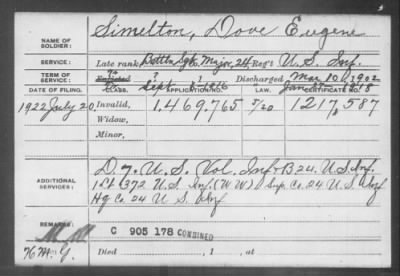 NAME OF SOLDIER: Simelton, Dove Eugene
SERVICE: Late rank, Battln Sgt. Major, 24 Reg't U.S. Inf.
TERM OF SERVICE: Enlisted Discharged Mar 10, 1902
DATE OF FILING. CLASS. APPLICATION NO. LAW. CERTIFICATE NO.
1922 July 20 Invalid, 1,469,765 5/20 1217,587
Widow,
Minor,
ADDITIONAL SERVICES: D 7. U.S. Vol. Inf + B 24. U.S. Inf.
1st 372 U.S. Inf. (WW) Sup. Co. 24 U.S. Inf
Hq Co. 24 U.S. Inf
REMARKS: C 905 178 COMBINED
Died , 1 , at